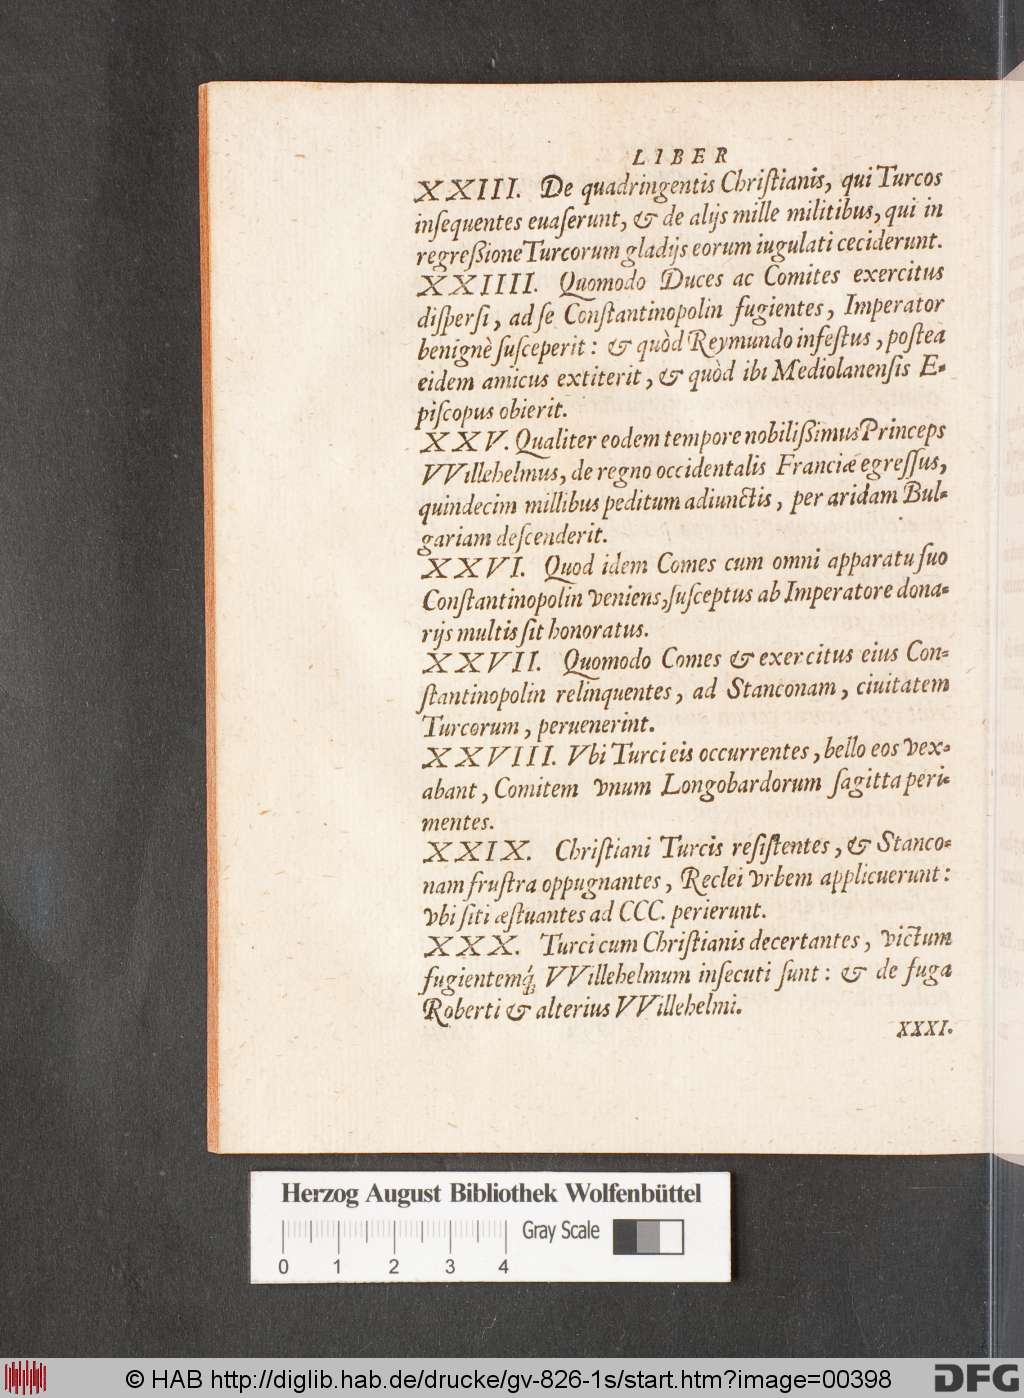 LIBER
XXIII. De quadringentis Chriſtianis, qui Turcos
inſequentes euaſerunt, & de alijs mille militibus, qui in
regreßione Turcorum gladijs eorum iugulati ceciderunt.
XXIIII. Quomodo Duces ac Comites exercitus
diſperſi, ad ſe Conſtantinopolin fugientes, Imperator
benignè ſuſceperit: & quòd Reymundo infeſtus, poſtea
eidem amicus extiterit, & quòd ibi Mediolanenſis E-
piſcopus obierit.
XXV. Qualiter eodem tempore nobilißimus Princeps
VVillehelmus, de regno occidentalis Franciæ egreſſus,
quindecim millibus peditum adiunctis, per aridam Bul-
gariam deſcenderit.
XXVI. Quod idem Comes cum omni apparatu ſuo
Conſtantinopolin veniens, ſuſceptus ab Imperatore dona-
rijs multis ſit honoratus.
XXVII. Quomodo Comes & exercitus eius Con-
ſtantinopolin relinquentes, ad Stanconam, ciuitatem
Turcorum, peruenerint.
XXVIII. Vbi Turci eis occurrentes, bello eos vex-
abant, Comitem vnum Longobardorum ſagitta peri-
mentes.
XXIX. Chriſtiani Turcis reſiſtentes, & Stanco-
nam fruſtra oppugnantes, Reclei vrbem applicuerunt:
vbi ſiti æſtuantes ad CCC. perierunt.
XXX. Turci cum Chriſtianis decertantes, victum
fugientemq́; VVillehelmum inſecuti ſunt: & de fuga
Roberti & alterius VVillehelmi.
XXXI.
Herzog August Bibliothek Wolfenbüttel
Gray Scale
0 1 2 3 4
© HAB http://diglib.hab.de/drucke/gv-826-1s/start.htm?image=00398
DFG